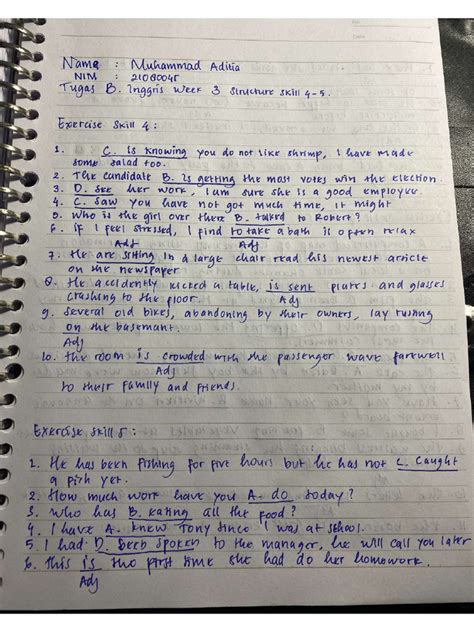 Nama : Muhammad Aditia
NIM : 21060045
Tugas B. Inggris Week 3 Structure Skill 4-5.
Exercise Skill 4 :
1. C. Is Knowing you do not like shrimp, I have made
some salad too.
2. The candidate B. Is getting the most votes win the election
3. D. See her work, I am sure she is a good employee.
4. C. Saw you have not got much time, it might
5. Who is the girl over there B. talked to Robert?
6. if I feel stressed, I find to take a bath is often relax
Adj Adj
7. He are sitting in a large chair read his newest article
on the newspaper
8. He accidently kicked a table, is sent plates and glasses
crashing to the floor. Adj
9. Several old bikes, abandoning by their owners, lay rusting
on the basemant.
Adj
10. the room is crowded with the passenger wave farewell
Adj
to their family and friends.
Exercise skill 5 :
1. He has been fishing for five hours but he has not C. Caught
a fish yet.
2. How much work have you A. do today?
3. Who has B. eating all the food?
4. I have A. knew Tony since I was at school.
5. I had D. been spoken to the manager, he will call you later
6. This is the first time she had do her homework.
Adj